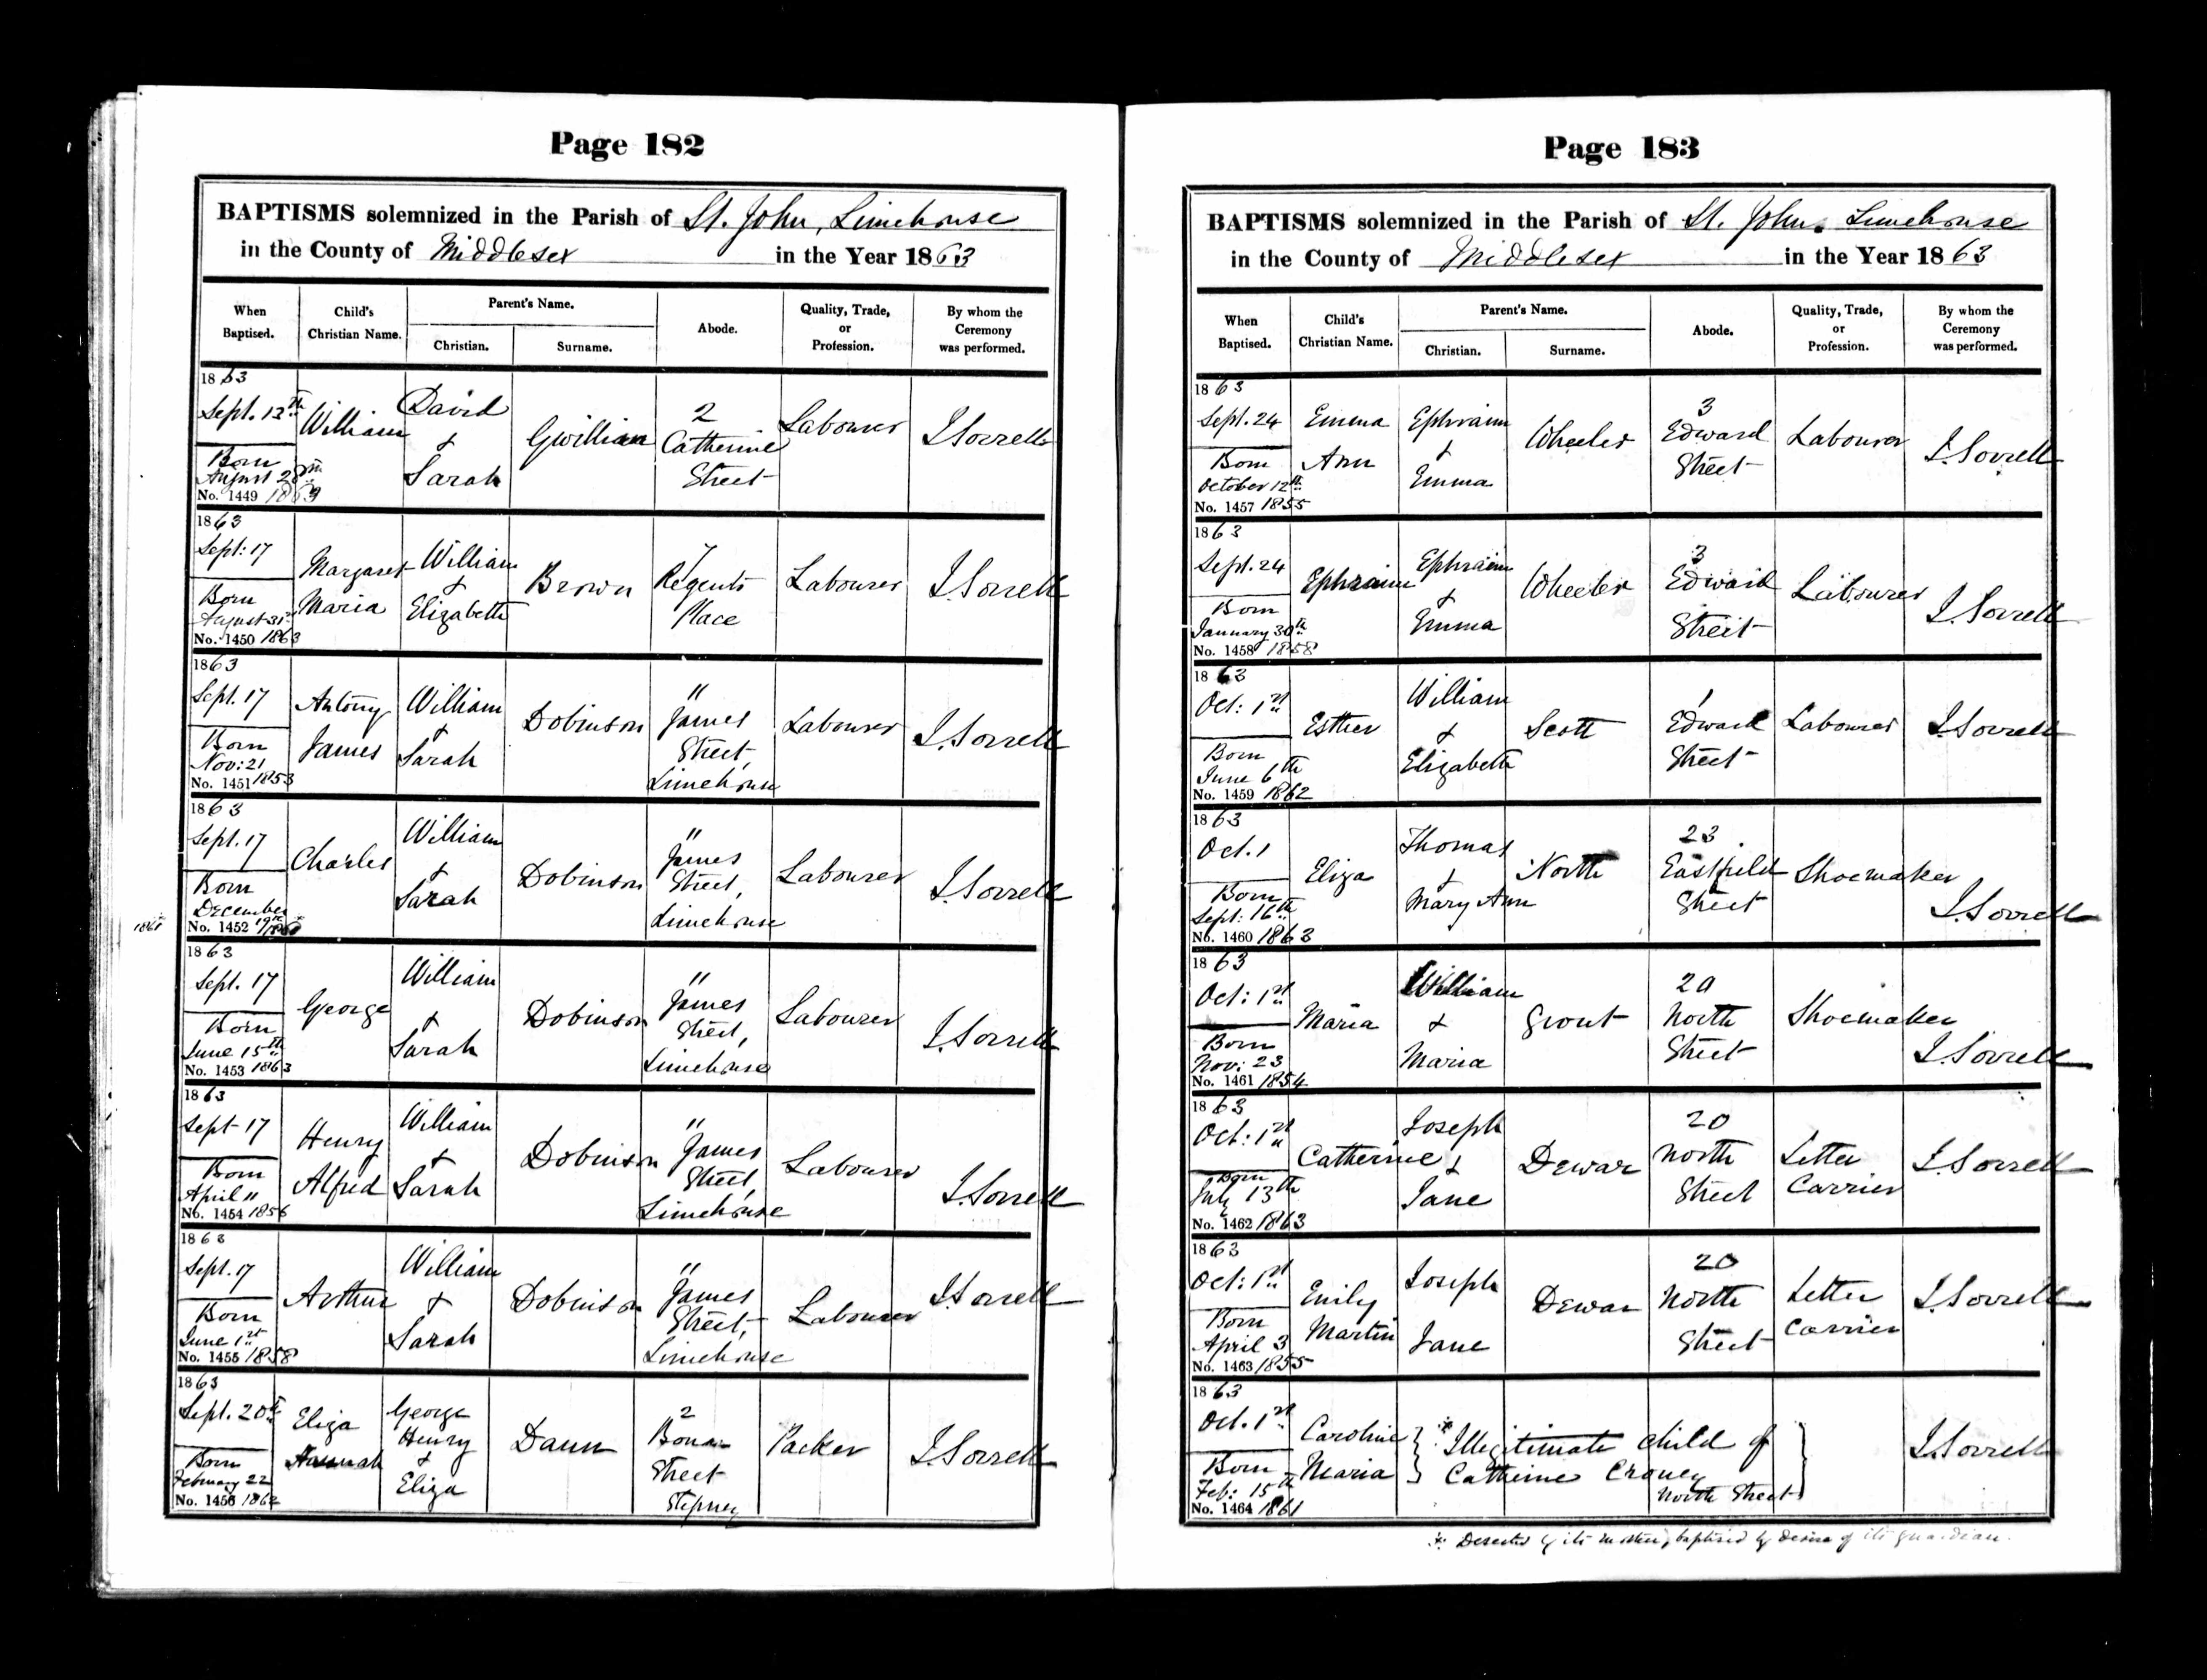 Page 182
BAPTISMS solemnized in the Parish of St. John, Limehouse
in the County of Middlesex in the Year 1863
When Baptised.
Child's Christian Name.
Parent's Name.
Christian.
Surname.
Abode.
Quality, Trade, or Profession.
By whom the Ceremony was performed.
1863
Sept. 13th
Born
August 28th
No. 1449 1863
William
David
&
Sarah
Gwillian
2
Catherine
Street
Labourer
J. Sorrell
1863
Sept: 17
Born
August 31st
No. 1450 1863
Margaret
Maria
William
&
Elizabeth
Brown
7
Regents
Place
Labourer
J. Sorrell
1863
Sept. 17
Born
Nov: 21
No. 1451 1853
Antony
James
William
&
Sarah
Dobinson
"
James
Street,
Limehouse
Labourer
J. Sorrell
1863
Sept. 17
Born
December
19th
No. 1452
1861
Charles
William
&
Sarah
Dobinson
"
James
Street,
Limehouse
Labourer
J. Sorrell
1863
Sept. 17
Born
June 15th
No. 1453 1863
George
William
&
Sarah
Dobinson
"
James
Street,
Limehouse
Labourer
J. Sorrell
1863
Sept 17
Born
April 11
No. 1454 1856
Henry
Alfred
William
&
Sarah
Dobinson
"
James
Street,
Limehouse
Labourer
J. Sorrell
1863
Sept. 17
Born
June 1st
No. 1455 1858
Arthur
William
&
Sarah
Dobinson
"
James
Street,
Limehouse
Labourer
J. Sorrell
1863
Sept. 20th
Born
February 22
No. 1456 1862
Eliza
Hannah
George
Henry
&
Eliza
Dann
2
Street
Stepney
Packer
J. Sorrell
Page 183
BAPTISMS solemnized in the Parish of St. John, Limehouse
in the County of Middlesex in the Year 1863
When Baptised.
Child's Christian Name.
Parent's Name.
Christian.
Surname.
Abode.
Quality, Trade, or Profession.
By whom the Ceremony was performed.
1863
Sept. 24
Born
October 12th
No. 1457 1855
Emma
Ann
Ephraim
&
Emma
Wheeler
3
Edward
Street
Labourer
J. Sorrell
1863
Sept. 24
Born
January 30th
No. 1458 1858
Ephraim
Ephraim
&
Emma
Wheeler
3
Edward
Street
Labourer
J. Sorrell
1863
Oct: 1st
Born
June 6th
No. 1459 1862
Esther
William
&
Elizabeth
Scott
1
Edward
Street
Labourer
J. Sorrell
1863
Oct. 1
Born
Sept: 16th
No. 1460 1863
Eliza
Thomas
&
Mary Ann
North
23
Eastfield
Street
Shoemaker
J. Sorrell
1863
Oct: 1st
Born
Nov: 23
No. 1461 1854
Maria
William
&
Maria
Grout
20
North
Street
Shoemaker
J. Sorrell
1863
Oct: 1st
Born
July 13th
No. 1462 1863
Catherine
Joseph
&
Jane
Dewar
20
North
Street
Letter
Carrier
J. Sorrell
1863
Oct: 1st
Born
April 3
No. 1463 1855
Emily
Martin
Joseph
Jane
Dewar
20
North
Street
Letter
Carrier
J. Sorrell
1863
Oct. 1st
Born
Feb: 15th
No. 1464 1861
Caroline
Maria
* Illegitimate child of
Catherine Croney
North Street
J. Sorrell
* Deserted by its mother, baptised by desire of its guardian.